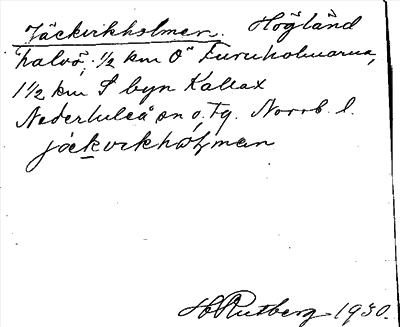 Jäckvikholmen. Högländ
halvö, ½ km O Furuholmarna,
1½ km S byn Kallax
Nederluleå sn o. tg. Norrb. l.
jäckvikhólman
H Rutberg 1930.